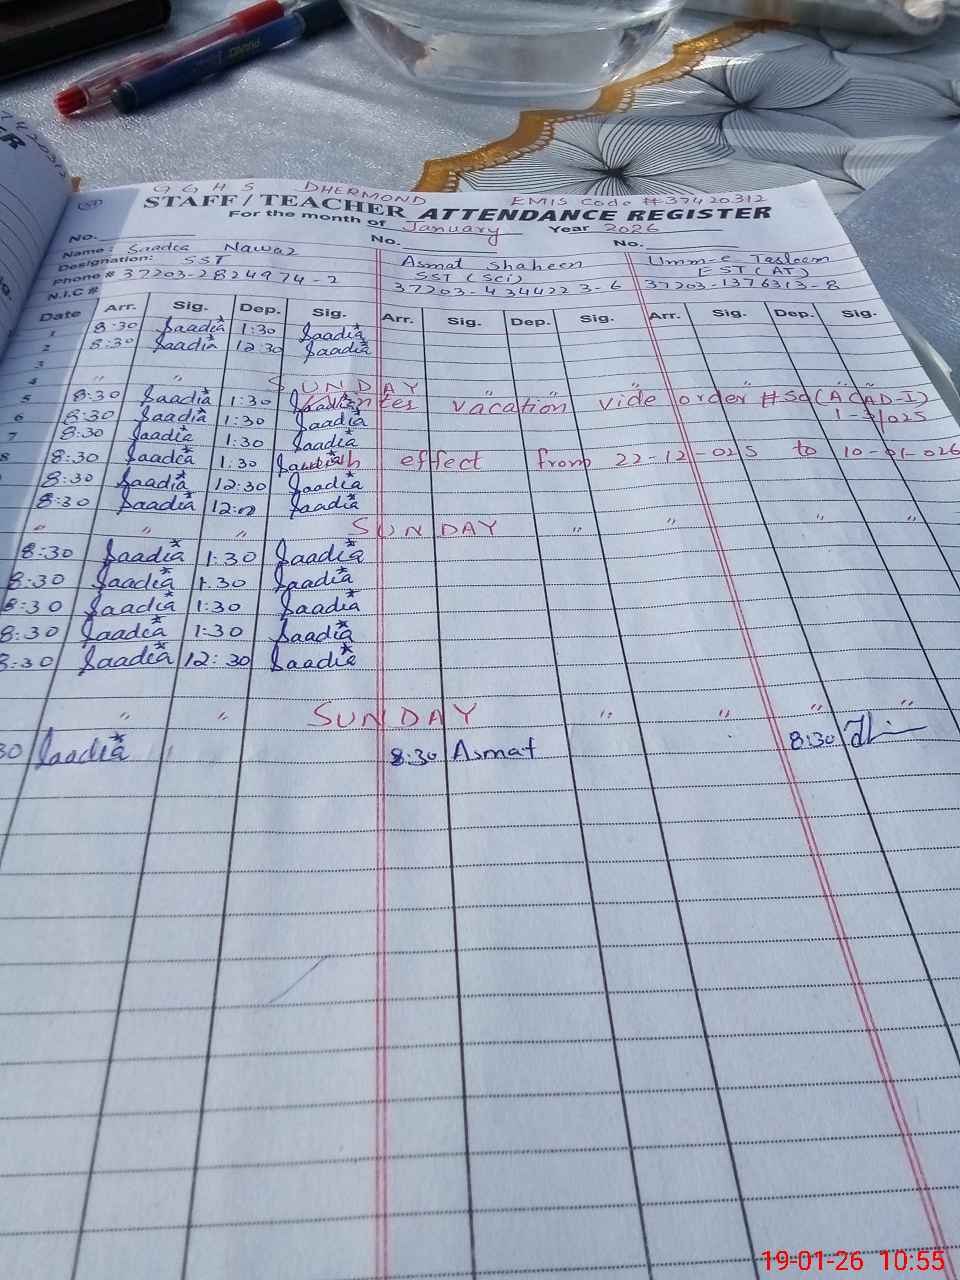 GGHS DHERMOND EMIS Code # 37420312
STAFF/TEACHER ATTENDANCE REGISTER
For the month of January Year 2026
No. No. No.
Name: Saadia Nawaz Asmat Shaheen Umm-e Tasleem
Designation: SST SST (Sci) EST (AT)
Phone # 37203-2824974-2 37203-434422 3-6 37203-1376313-8
N.I.C #
Date Arr. Sig. Dep. Sig. Arr. Sig. Dep. Sig. Arr. Sig. Dep. Sig.
1 8:30 Saadia 1:30 Saadia
2 8:30 Saadia 12:30 Saadia
3
4 " " SUNDAY " " " " "
5 8:30 Saadia 1:30 Saadia Winter vacation vide order # SO (ACAD-I)
6 8:30 Saadia 1:30 Saadia
7 8:30 Saadia 1:30 Saadia
8 8:30 Saadia 1:30 Saadia with effect from 22-12-025 to 10-01-026
8:30 Saadia 12:30 Saadia
8:30 Saadia Saadia
" " " SUNDAY " " " "
8:30 Saadia 1:30 Saadia
8:30 Saadia 1:30 Saadia
8:30 Saadia 1:30 Saadia
8:30 Saadia 1:30 Saadia
8:30 Saadia 12:30 Saadia
" " SUNDAY " " " "
30 Saadia 8:30 Asmat 8:30
19-01-26 10:55